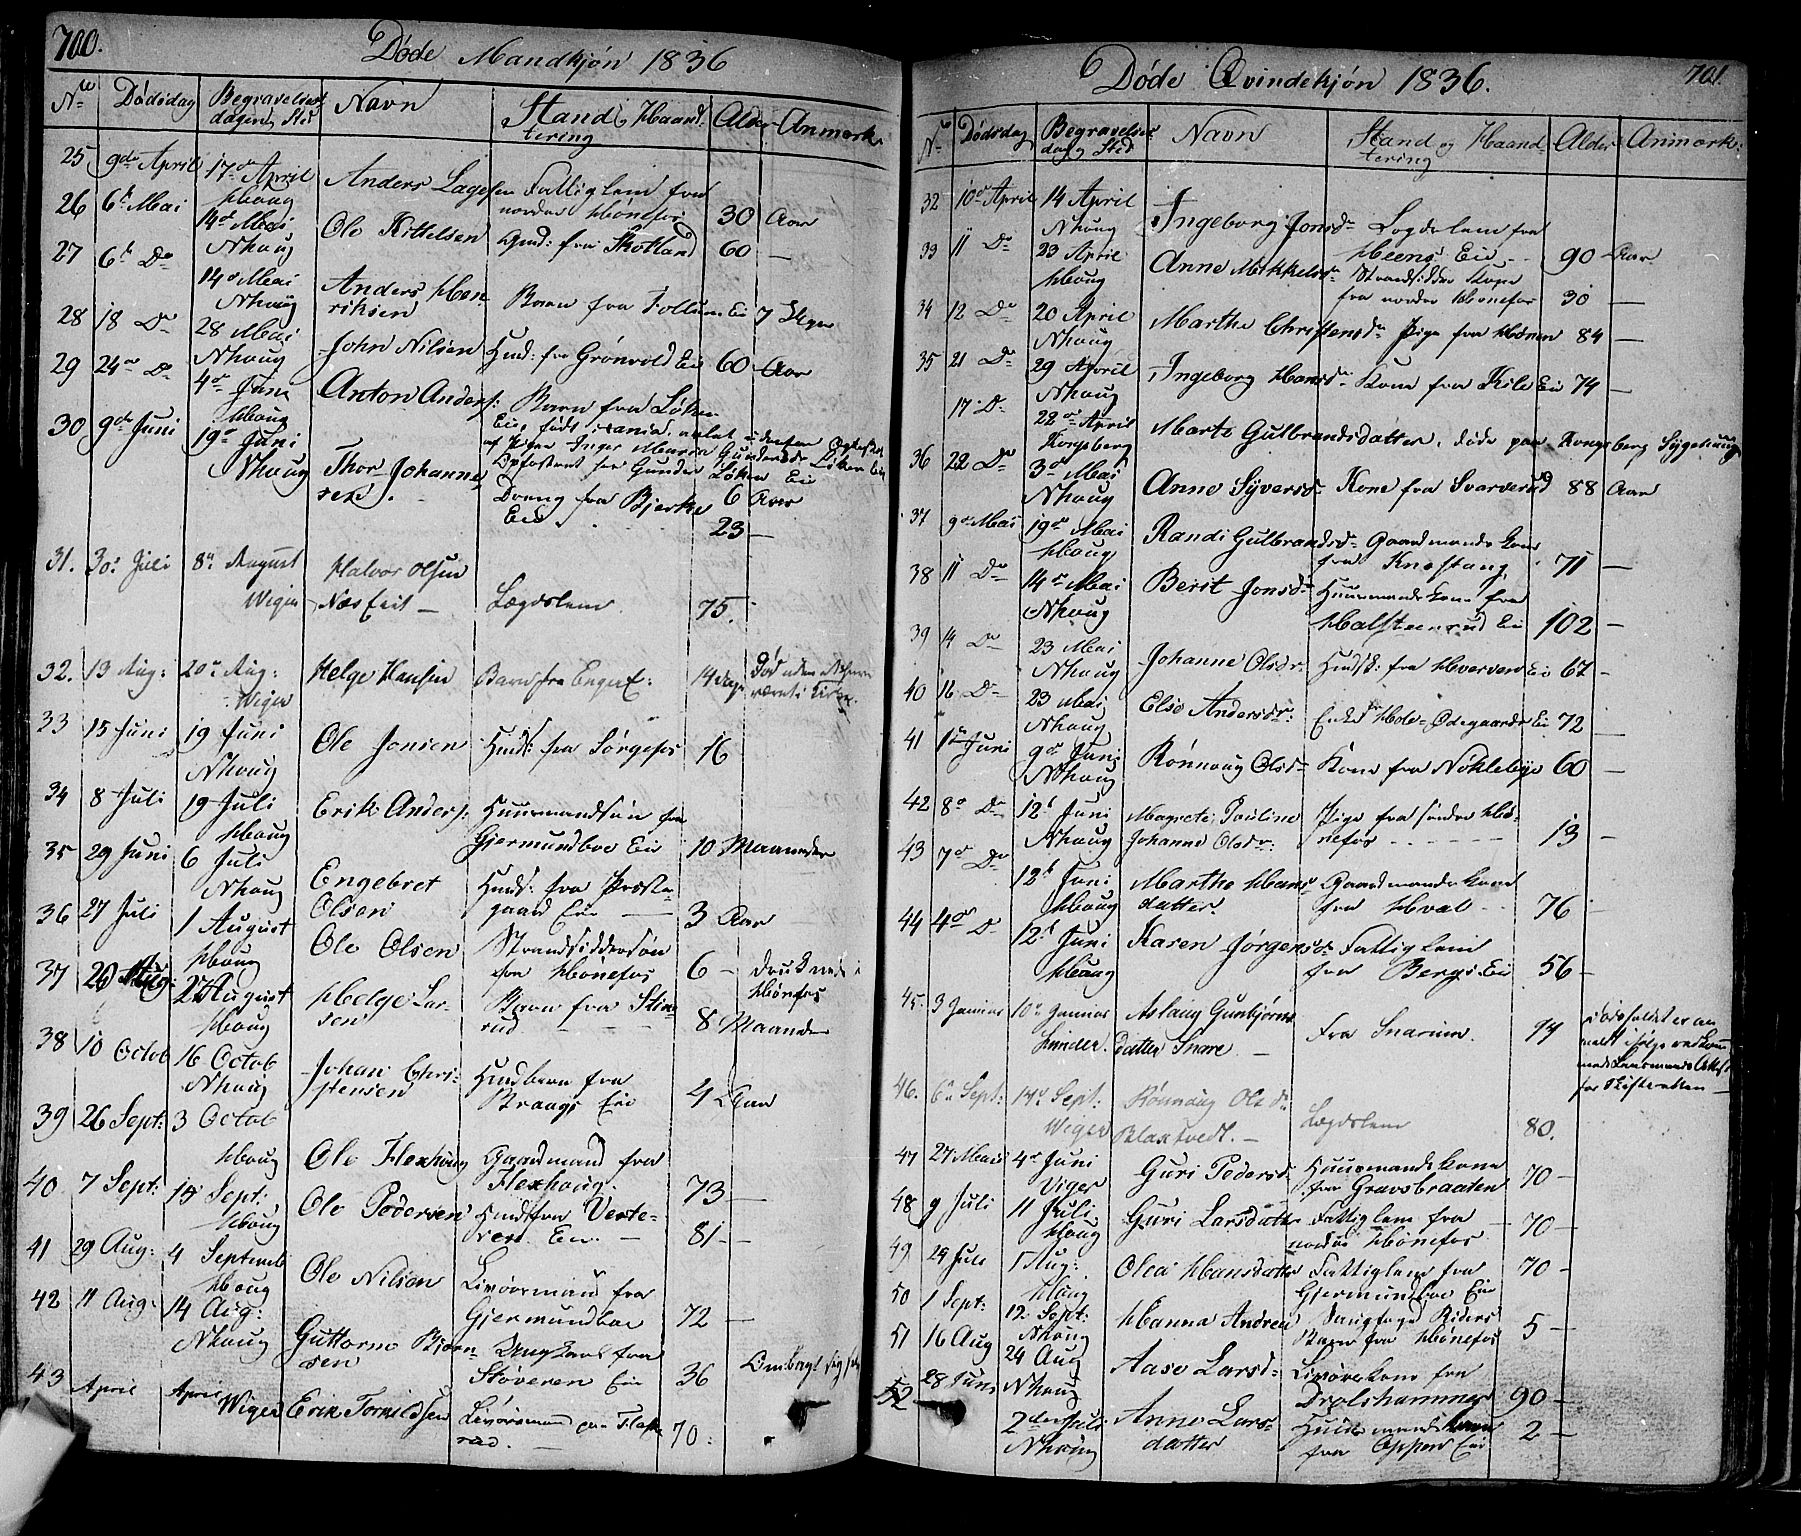 700.
Døde Mandkjøn 1836
No Dødsdag Begravelses dag og Sted Navn Stand og Haandtering Alder Anmærk
25 9de April 17de April Haug Anders Lagesen Fattiglem fra nordre Hønefos 30 Aar
26 6te Mai 14de Mai Nhaug Ole Kittelsen Gmd: fra Skotland 60 —
27 6te Do 14de Mai Nhaug Anders Henriksen Barn fra Follum Eie 7 Uger
28 18 Do 28 Mai Nhaug John Nilsen Hmd: fra Grønvold Eie 60 Aar
29 24de Do 4de Juni Haug Anton Anders: Barn fra Løken Eie, født
af Pige Inger Marie
Opfostret hos Gunder Løken Eie 6 Aar
30 9de Juni 19de Juni Nhaug Thor Johannessen. Dreng fra Bjerke Eie 23 —
31. 30. Juli 8de August Wiger Halvor Olsen Næs Eie — Lægdslem. 75.
32. 13 Aug: 20de Aug: Wiger Helge Hansen Barn fra Enger E: 14 Dage
33 15 Juni 19 Juni Nhaug Ole Jonsen Hmds: fra Sørgefos 16
34 8 Juli 19 Juli Haug Erik Anders: Huusmandsøn fra Gjermundboe Eie 10 Maaneder
35 29 Juni 6 Juli Nhaug Engebret Olsen Hmds: fra Prestegaard Eie 3 Aar
36 27 Juli 1 August Haug Ole Olsen Strandsiddersøn fra Hønefos 6 — druknede i Hønefos
37 20 Aug: 27 August Haug Helge Larsen Barn fra Stinerud 8 Maaneder
38 10 Octob 16 Octob Nhaug Johan Christensen Hmdbarn fra Braags Eie 4 Aar
39 26 Sept: 3 Octob Haug Ole Flexhaug Gaardmand fra Flexhaug. 73 —
40 7 Sept: 15 Sept: Haug Ole Pedersen Hmd fra Vesteren Eie. — 81 —
41 29 Aug: 4 Septemb Haug Ole Nilsen Livøremand fra Gjermundboe 72 —
42 11 Aug: 14 Aug: Nhaug Guttorm Bjørnsen Ungkarl fra Støveren Eie 36 Ombragt sig selv
43 April April Wiger Erik Tornildsen Livøresmand 70.
701.
Døde Qvindekjøn 1836.
No Dødsdag Begravelses dag og Sted Navn Stand og Haandtering Alder Anmærk:
32 10de April 14 April Nhaug Ingeborg Jonsdr Legdslem fra Heens Eie — 90 Aar
33 11 Do 23 April Haug Anne Mikkelsdr Strandsidder Kone fra nordre Hønefos 30 —
34 12 Do 20 April Nhaug Marthe Christensdr Pige fra Hønen 84 —
35 21 Do 29 April Nhaug Ingeborg Hansdr Kone fra Kile Eie 74 —
17 Do 22de April Kongsberg Marte Gulbrandsdatter, døde paa Kongsberg Sygehuus
36 22 Do 3de Mai Nhaug Anne Syversdr Kone fra Svarverud 88 Aar
37 9de Mai 19de Mai Haug Randi Gulbrandsdr Gaardmands kone fra Knestang 71 —
38 11 Do 14de Mai Nhaug Berit Jonsdr Huusmands kone fra Halsteensrud Eie 102 —
39 14 Do 23 Mai Nhaug Johanne Olsdr Hmdsk: fra Hverven Eie 67 —
40 16 Do 23 Mai Nhaug Else Andersdr: Enke fra Hole-Ødegaards Eie 72 —
41 1te Juni 9de Juni Nhaug Rønnaug Olsdr Kone fra Nøklebye 60 —
42 8de Do 12te Juni Nhaug Magrete Pouline Johanne Olsdr: Pige fra søndre Hønefos 13 —
43 7de Do 12te Juni Haug Marthe Hansdatter. Gaardmands kone fra Hval 76 —
44 4de Do 12te Juni Haug Karen Jørgensdr Fattiglem fra Bergs Eie 56 —
45. 3 Januar 10de Januar Lunder. Aslaug Gunbjørnsdatter Snare. — Fra Snarum. 94
46. 6te Sept: 14de Sept: Wiger Rønnaug Olsdr Blaxtvedt. — Lægdslem 80.
47 27 Mai 4de Juni Viger Guri Pedersdr Huusmands kone fra Gravsbraaten 70 —
48 9 Juli 11 Juli Haug Guri Larsdatter Fattiglem fra nordre Hønefos 70 —
49 29 Juli 1 Aug: Haug Olea Hansdatter Fattiglem fra Gjermundboe Eie 70 —
50 1 Sept: 12 Sept: Nhaug Hanna Andrea Barn fra Hønefos 5 —
51 16 Aug 24 Aug Nhaug Aase Larsdr Livørekone fra Drolshammer 90 —
52 28 Juni 2den Juli Nhaug Anne Larsdatter fra Oppen Eie 2 —